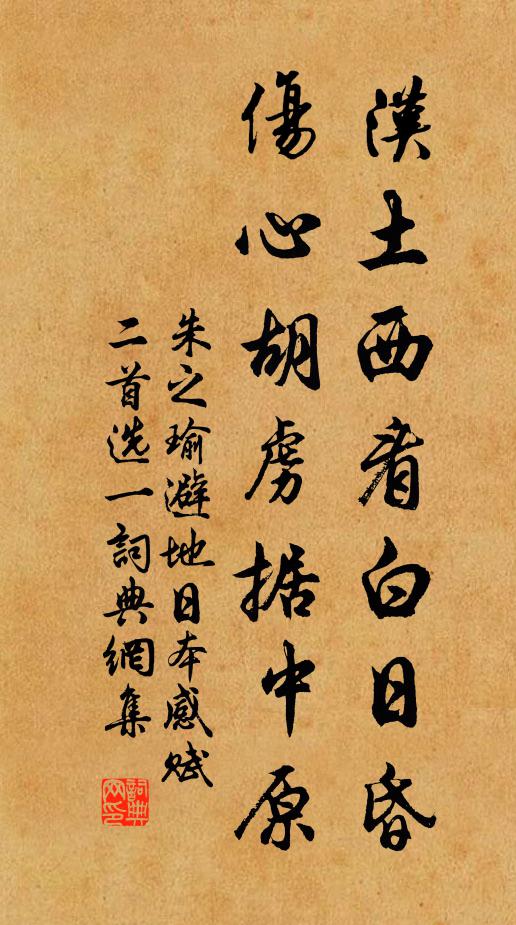 漢土西看白日昏
傷心胡虜据中原
朱之瑜避地日本感賦
二首选一詞典網集
詞典网印